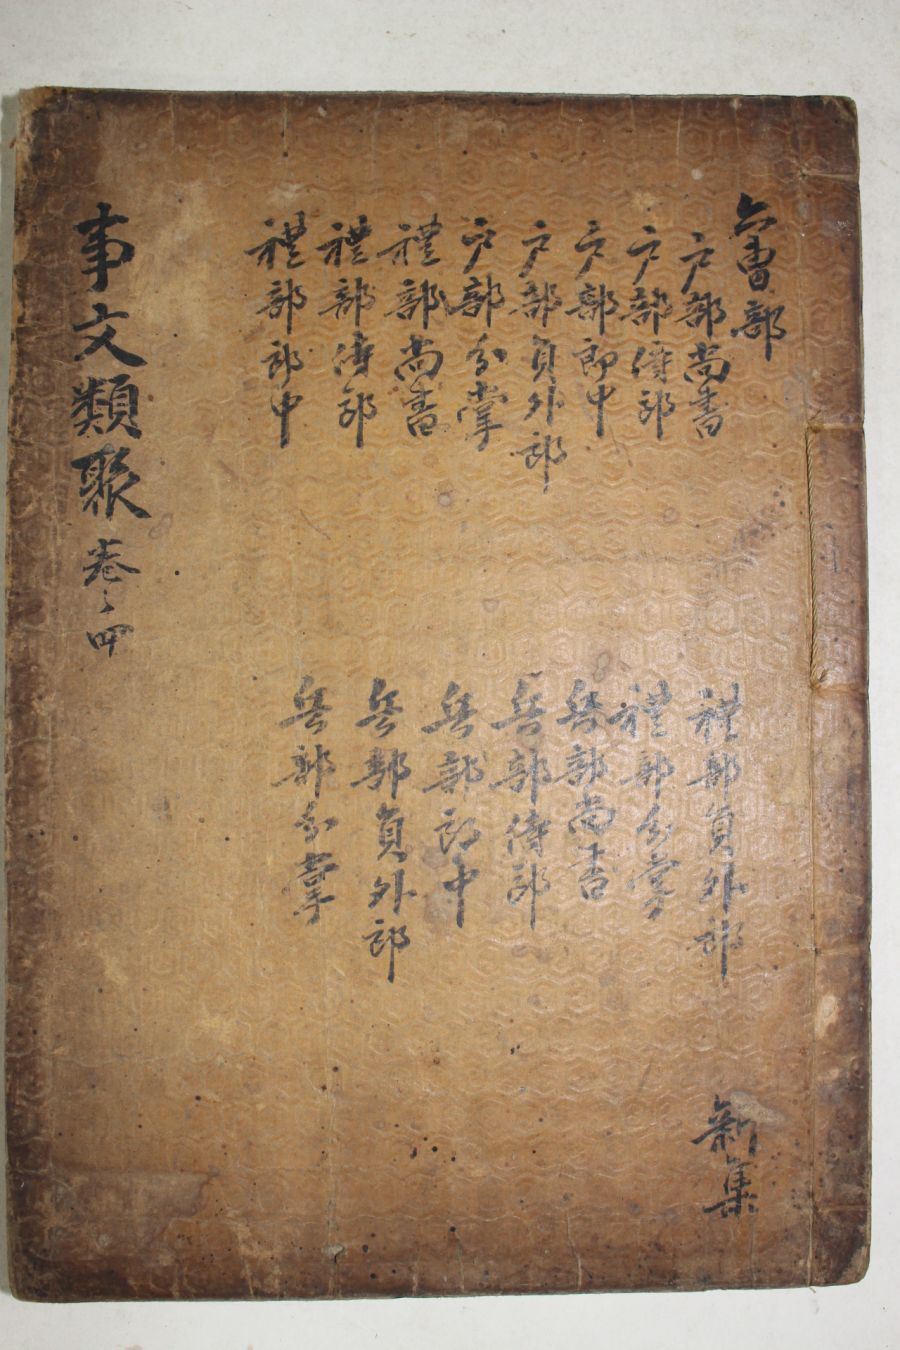 六曹部
戶部尚書
戶部侍郎
戶部郎中
戶部員外郎
戶部分掌
禮部尚書
禮部侍郎
禮部郎中
禮部員外郎
禮部分掌
兵部尚書
兵部侍郎
兵部郎中
兵部員外郎
兵部分掌
新集
事文類聚 卷之四